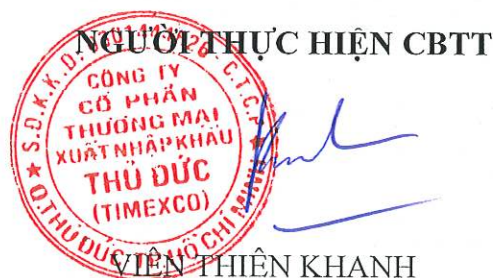 NGƯỜI THỰC HIỆN CBTT
CÔNG TY
CỔ PHẦN
THƯƠNG MẠI
XUẤT NHẬP KHẨU
THỦ ĐỨC
(TIMEXCO)
Q.THỦ ĐỨC TP HỒ CHÍ MINH
VIÊN THIÊN KHANH